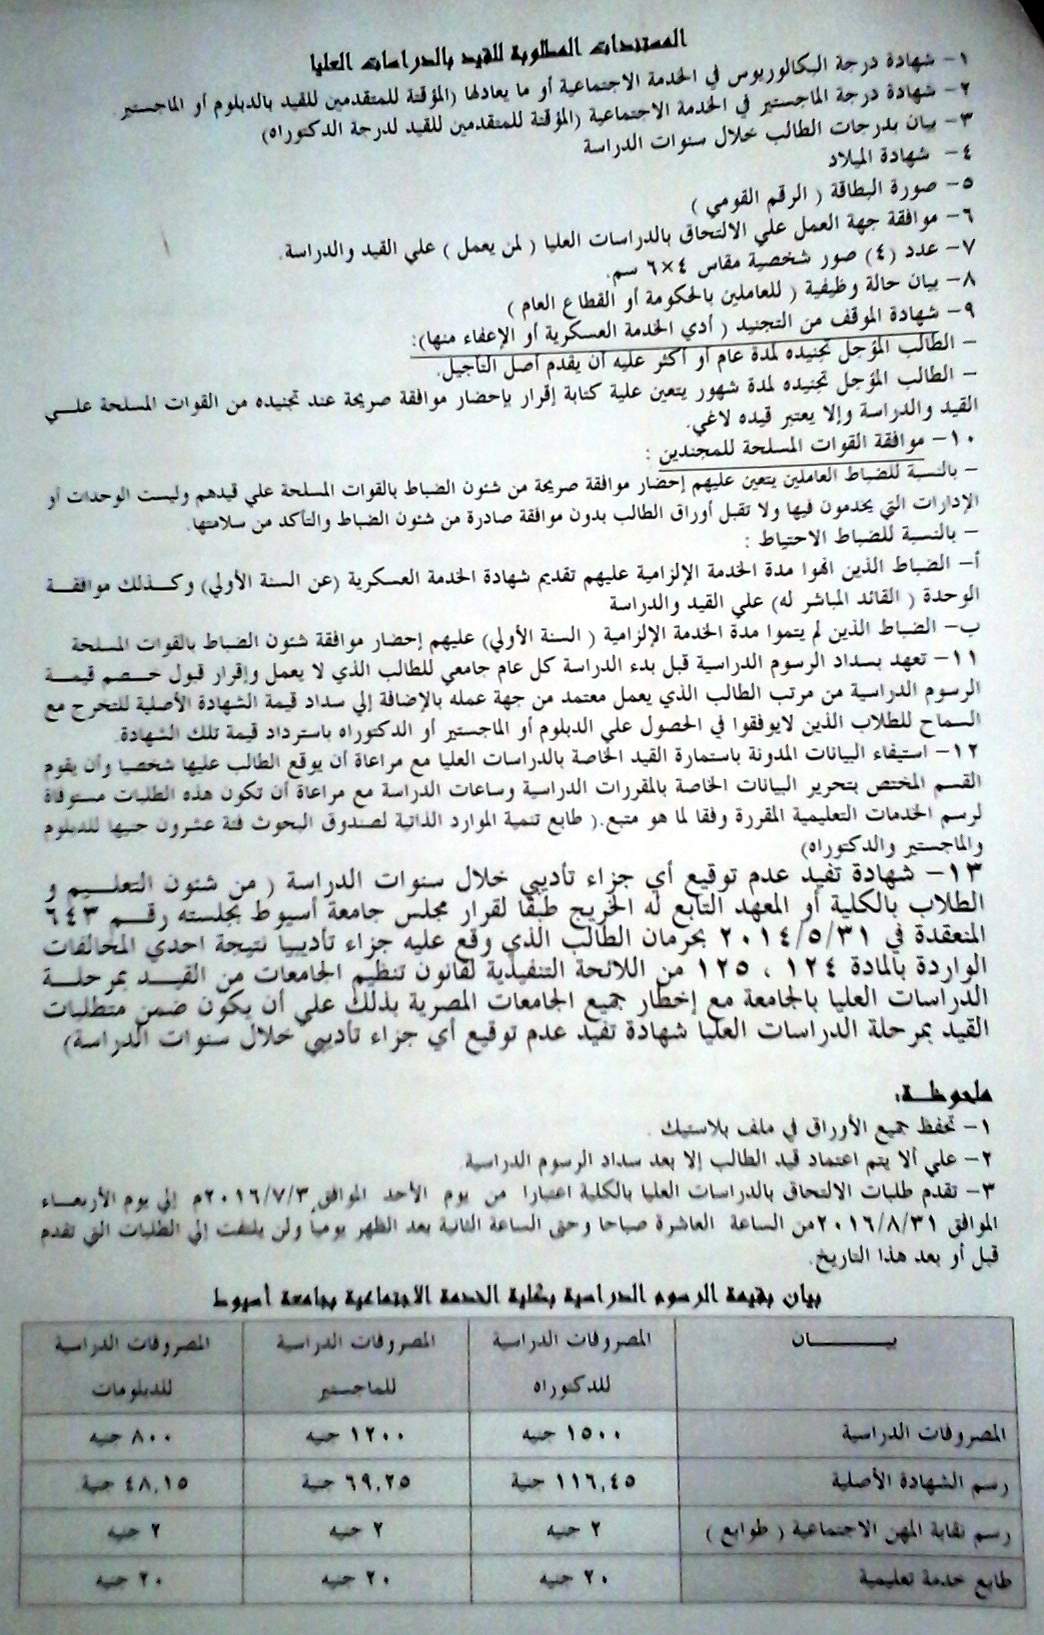 المستندات المطلوبة للقيد بالدراسات العليا
١- شهادة درجة البكالوريوس في الخدمة الاجتماعية أو ما يعادلها (المؤقتة للمتقدمين للقيد بالدبلوم أو الماجستير
٢- شهادة درجة الماجستير في الخدمة الاجتماعية (المؤقتة للمتقدمين للقيد لدرجة الدكتوراه)
٣- بيان بدرجات الطالب خلال سنوات الدراسة
٤- شهادة الميلاد
٥- صورة البطاقة ( الرقم القومي )
٦- موافقة جهة العمل علي الالتحاق بالدراسات العليا ( لمن يعمل ) علي القيد والدراسة.
٧- عدد (٤) صور شخصية مقاس ٤×٦ سم.
٨- بيان حالة وظيفية ( للعاملين بالحكومة أو القطاع العام )
٩- شهادة الموقف من التجنيد ( أدي الخدمة العسكرية أو الإعفاء منها):
– الطالب المؤجل تجنيده لمدة عام أو أكثر عليه أن يقدم أصل التأجيل.
– الطالب المؤجل تجنيده لمدة شهور يتعين علية كتابة إقرار بإحضار موافقة صريحة عند تجنيده من القوات المسلحة علـــي
القيد والدراسة وإلا يعتبر قيده لاغي.
١٠- موافقة القوات المسلحة للمجندين :
– بالنسبة للضباط العاملين يتعين عليهم إحضار موافقة صريحة من شئون الضباط بالقوات المسلحة علي قيدهم وليست الوحدات أو
الإدارات التي يخدمون فيها ولا تقبل أوراق الطالب بدون موافقة صادرة من شئون الضباط والتأكد من سلامتها.
– بالنسبة للضباط الاحتياط :
أ- الضباط الذين انهوا مدة الخدمة الإلزامية عليهم تقديم شهادة الخدمة العسكرية (عن السنة الأولي) وكـذلك موافقـــة
الوحدة ( القائد المباشر له) علي القيد والدراسة
ب- الضباط الذين لم يتموا مدة الخدمة الإلزامية ( السنة الأولي) عليهم إحضار موافقة شئون الضباط بالقوات المسلحة
١١- تعهد بسداد الرسوم الدراسية قبل بدء الدراسة كل عام جامعي للطالب الذي لا يعمل وإقرار قبول خـصم قيمـــة
الرسوم الدراسية من مرتب الطالب الذي يعمل معتمد من جهة عمله بالإضافة إلي سداد قيمة الشهادة الأصلية للتخرج مع
السماح للطلاب الذين لايوفقوا في الحصول علي الدبلوم أو الماجستير أو الدكتوراه باسترداد قيمة تلك الشهادة.
١٢- استيفاء البيانات المدونة باستمارة القيد الخاصة بالدراسات العليا مع مراعاة أن يوقع الطالب عليها شخصيا وأن يقوم
القسم المختص بتحرير البيانات الخاصة بالمقررات الدراسية وساعات الدراسة مع مراعاة أن تكون هذه الطلبات مستوفاة
لرسم الخدمات التعليمية المقررة وفقا لما هو متبع.( طابع تنمية الموارد الذاتية لصندوق البحوث فئة عشرون جنيها للدبلوم
والماجستير والدكتوراه)
١٣- شهادة تفيد عدم توقيع أي جزاء تأديبي خلال سنوات الدراسة ( من شئون التعلــيم و
الطلاب بالكلية أو المعهد التابع له الخريج طبقا لقرار مجلس جامعة أسيوط بجلسته رقــم ٦٤٣
المنعقدة في ٢٠١٤/٥/٣١ بحرمان الطالب الذي وقع عليه جزاء تأديبيا نتيجة احدي المخالفات
الواردة بالمادة ١٢٤ ، ١٢٥ من اللائحة التنفيذية لقانون تنظيم الجامعات من القيــد بمرحلــة
الدراسات العليا بالجامعة مع إخطار جميع الجامعات المصرية بذلك علي أن يكون ضمن متطلبات
القيد بمرحلة الدراسات العليا شهادة تفيد عدم توقيع أي جزاء تأديبي خلال سنوات الدراسة)
ملحوظـة:
١- تحفظ جميع الأوراق في ملف بلاستيك .
٢- علي ألا يتم اعتماد قيد الطالب إلا بعد سداد الرسوم الدراسية.
٣- تقدم طلبات الالتحاق بالدراسات العليا بالكلية اعتبارا من يوم الأحد الموافق ٢٠١٦/٧/٣م إلي يوم الأربعـــاء
الموافق ٢٠١٦/٨/٣١من الساعة العاشرة صباحا وحتى الساعة الثانية بعد الظهر يومياً ولن يلتفت إلي الطلبات التي تقدم
قبل أو بعد هذا التاريخ.
بيان بقيمة الرسوم الدراسية بكلية الخدمة الاجتماعية بجامعة أسيوط
بيـــــــان المصروفات الدراسية للدكتوراه المصروفات الدراسية للماجستير المصروفات الدراسية للدبلومات
المصروفات الدراسية ١٥٠٠ جنيه ١٢٠٠ جنيه ٨٠٠ جنيه
رسم الشهادة الأصلية ١١٦,٤٥ جنية ٦٩,٢٥ جنية ٤٨,١٥ جنية
رسم نقابة المهن الاجتماعية ( طوابع ) ٢ جنيه ٢ جنيه ٢ جنيه
طابع خدمة تعليمية ٢٠ جنيه ٢٠ جنيه ٢٠ جنيه